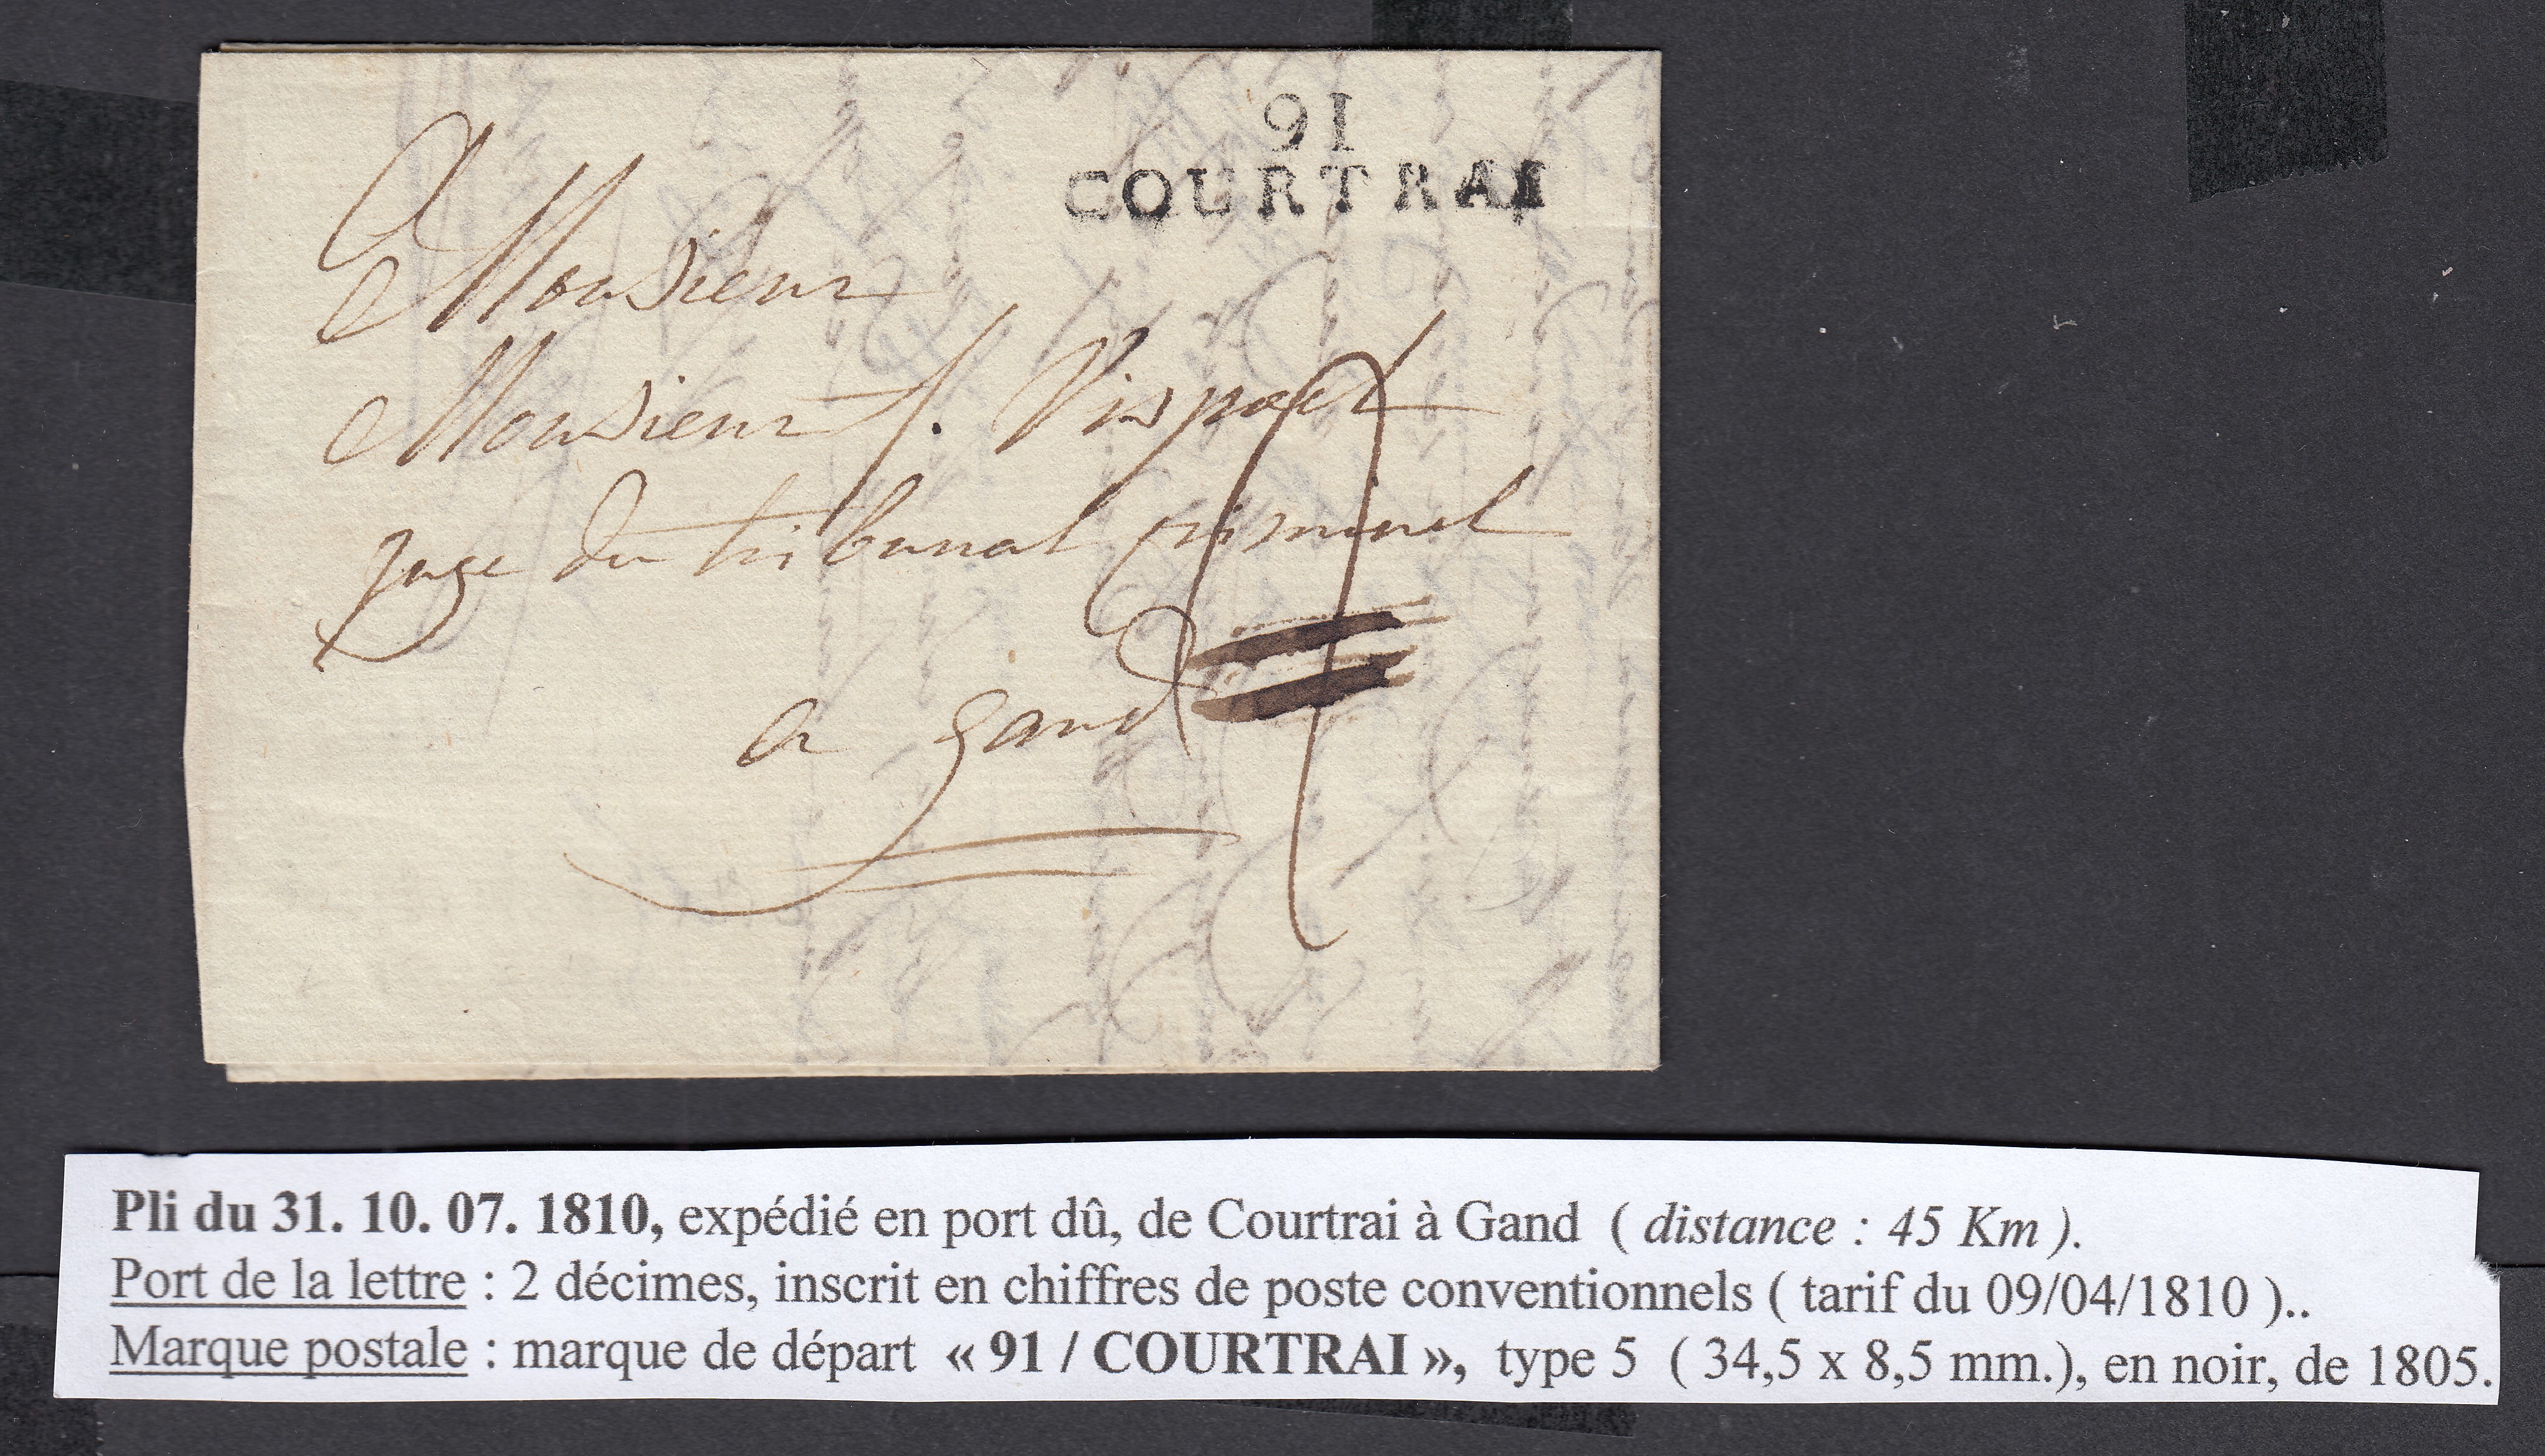 91
COURTRAI
A
Monsieur
Monsieur J. Vispoel
juge du tribunal criminel
a gand
Pli du 31. 10. 07. 1810, expédié en port dû, de Courtrai à Gand ( distance : 45 Km ).
Port de la lettre : 2 décimes, inscrit en chiffres de poste conventionnels ( tarif du 09/04/1810 )..
Marque postale : marque de départ « 91 / COURTRAI », type 5 ( 34,5 x 8,5 mm.), en noir, de 1805.